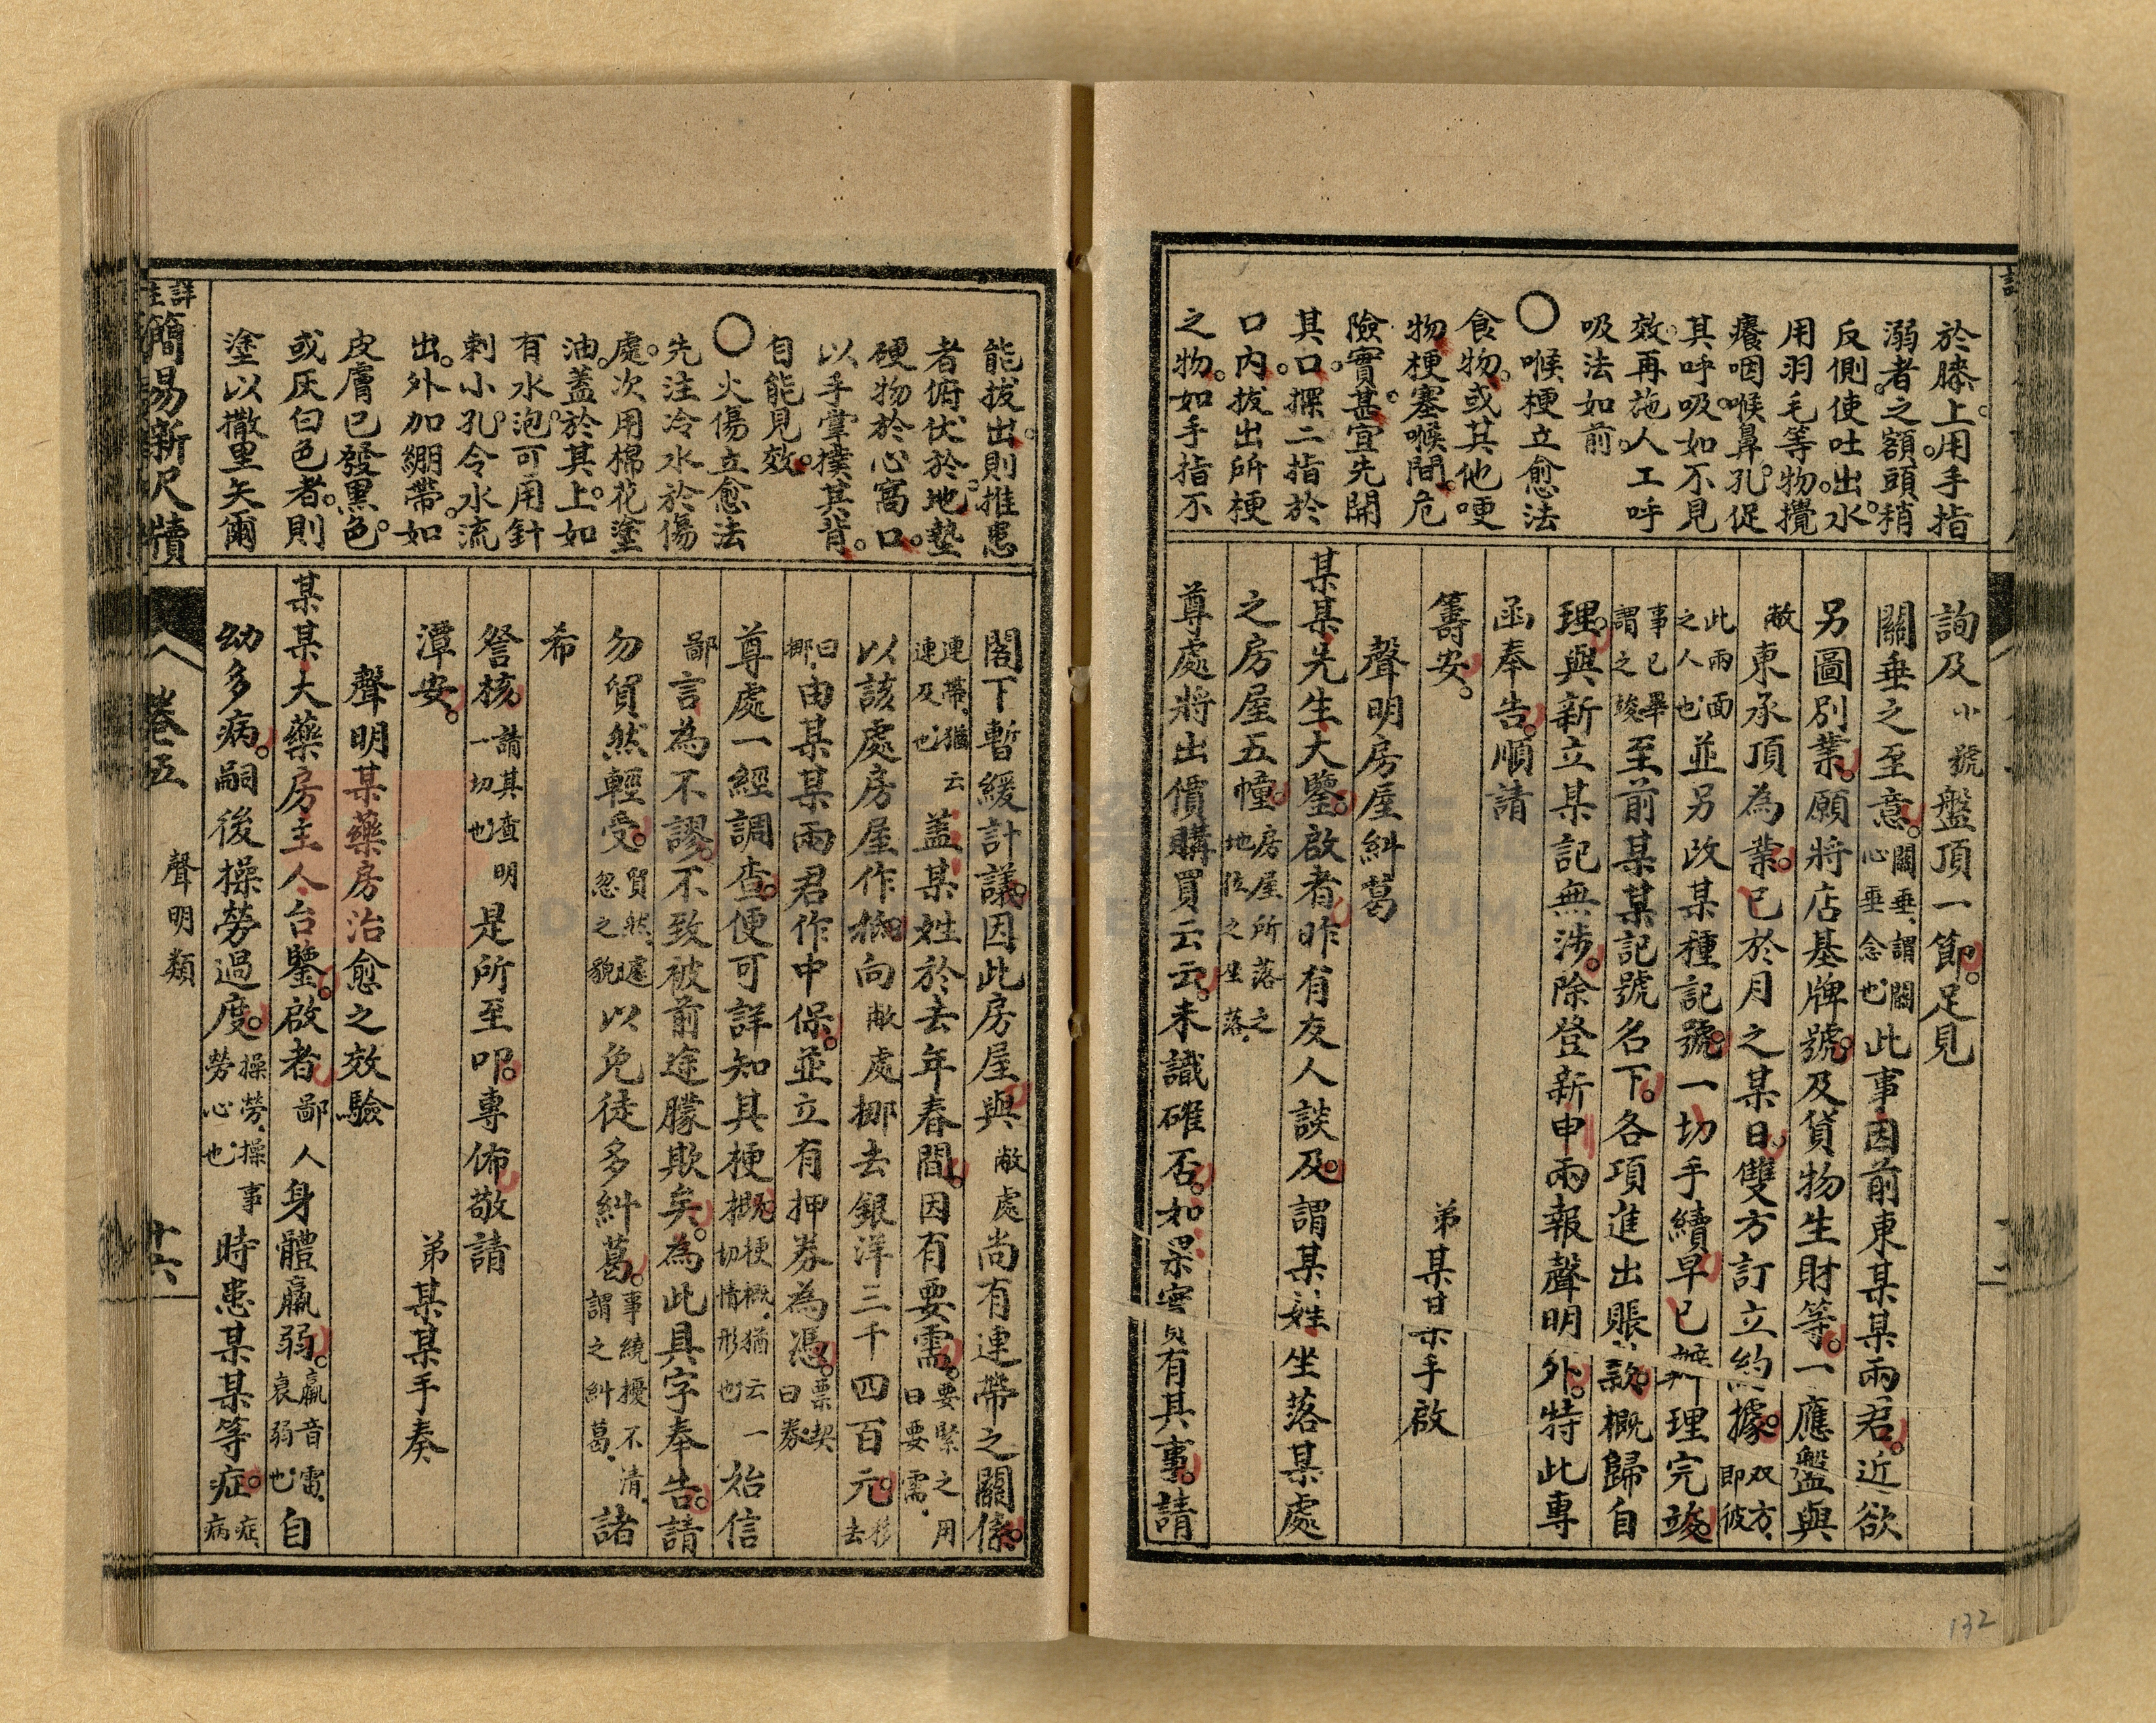 於膝上。用手指
溺者之額。頭稍
反側。使吐出水。
用羽毛等物。攪
癢咽喉鼻孔。促
其呼吸。如不見
效。再施人工呼
吸法如前。
〇喉梗立愈法
食物。或其他哽
物梗塞喉間。危
險實甚。宜先開
其口。探二指於
口內。拔出所梗
之物。如手指不
詢及小號盤頂一節。足見
關垂之至意。關垂、謂關心垂念也、此事因前東某某兩君。近欲
另圖別業。願將店基牌號。及貨物生財等。一應盤與
敝東承頂為業。已於月之某日。雙方訂立約據。双方、即彼
此兩面之人也、並另改某種記號。一切手續早已辦理完竣。
事已畢謂之竣至前某某記號名下。各項進出賬款。概歸自
理。與新立某記無涉。除登新申兩報聲明外。特此專
函奉告。順請
籌安。
弟某某手啟
聲明房屋糾葛
某某先生大鑒。啟者昨有友人談及。謂某姓坐落某處
之房屋五幢。房屋所落之地位之坐落、
尊處將出價購買云云。未識確否。如果實有其事。請
能拔出。則推患
者俯伏於地。墊
硬物於心窩口。
以手掌撲其背。
自能見效。
〇火傷立愈法
先注冷水於傷
處。次用棉花塗
油。蓋於其上。如
有水泡。可用針
刺小孔。令水流
出。外加綳帶。如
皮膚已發黑色。
或灰白色者。則
塗以撒里矢爾
閣下暫緩計議。因此房屋與敝處尚有連帶之關係。
連帶、猶云連及也蓋某姓於去年春間。因有要需。要緊之用曰要需、
以該處房屋作抵。向敝處挪去銀洋三千四百元。移去
曰挪、由某某兩君作中保。並立有押券為憑。票契曰券、
尊處一經調查。便可詳知其梗概。梗概、猶云一切情形也始信
鄙言為不謬。不致被前途朦欺矣。為此具字奉告。請
勿貿然輕受。貿然、遽忽之貌以免徒多糾葛。事繞擾不清、謂之糾葛、諸
希
詧核。請其查明一切也是所至叩。專佈敬請
潭安。
弟某某手奏
聲明某藥房治愈之效驗
某某大藥房主人台鑒。啟者鄙人身體羸弱。羸音雷、衰弱也自
幼多病。嗣後操勞過度。操勞、操事勞心也、時患某某等症。症、病
詳註簡易新尺牘
卷五
聲明類
十六
132